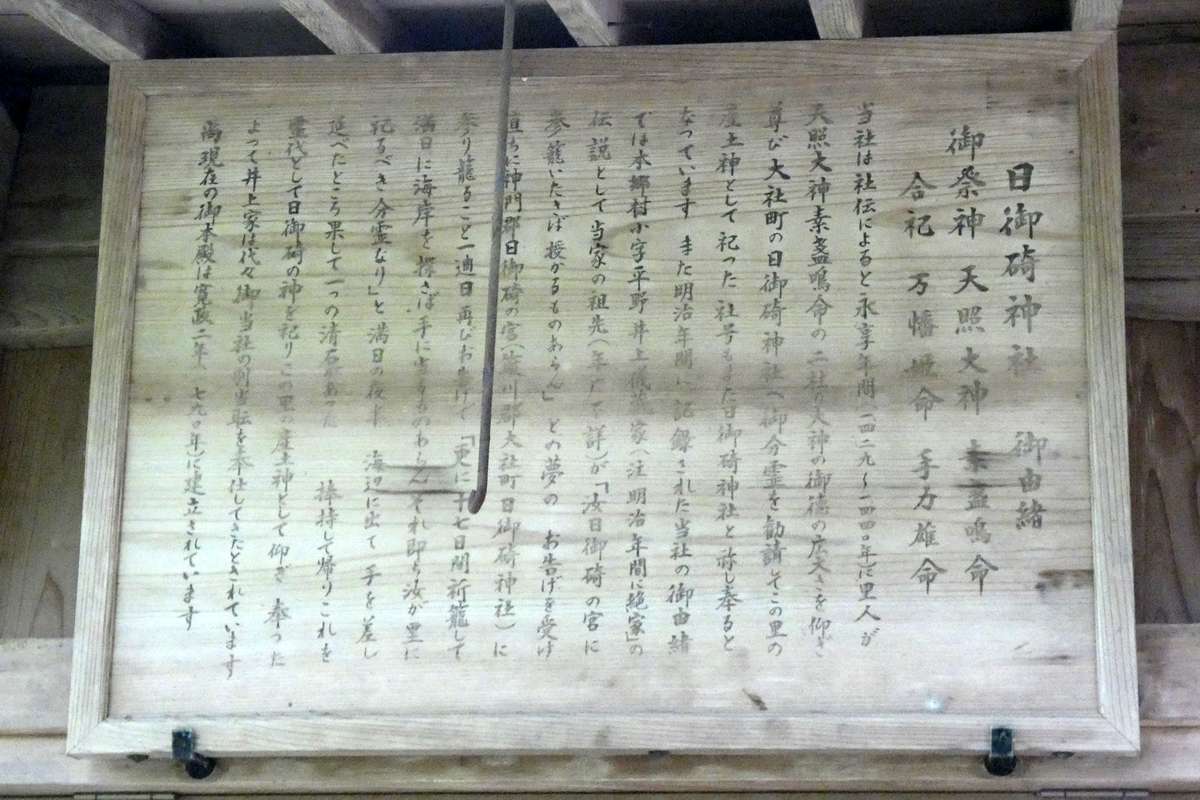 日御碕神社 御由緒
御祭神 天照大神 素盞鳴命
合祀 万幡姫命 手力雄命
当社は社伝によると永享年間(一四二九〜一四四〇年)に里人が
天照大神素盞鳴命の二柱の大神の御徳の広大さを仰ぎ
尊び大社町の日御碕神社へ御分霊を勧請そこの里の
産土神として祀った 社号もまた日御碕神社と称し奉ると
なっています また明治年間に記録された当社の御由緒
では本郷村小字平野井上儀 家(注明治年間に絶家)の
伝説として当家の祖先(年戸 詳)が「汝日御碕の宮に
参籠いたさば授かるものあらん」との夢の お告げを受け
直ちに神門郡日御碕の宮(簸川郡大社町日御碕神社)に
参り籠ること一週日再びお告げで「更に十七日間祈籠して
満日に海岸を探さば手に るものあらんそれ即ち汝が里に
祀るべき分霊なり」と満日の夜半 海辺に出て 手を差し
延べたところ果して一つの清石 捧持して帰りこれを
霊代として日御碕の神を祀りこの里の産土神として仰ぎ 奉った
よって井上家は代々御当社の別当職を奉仕してきたとされています
尚現在の御本殿は寛政二年(一七九〇年)に建立されています